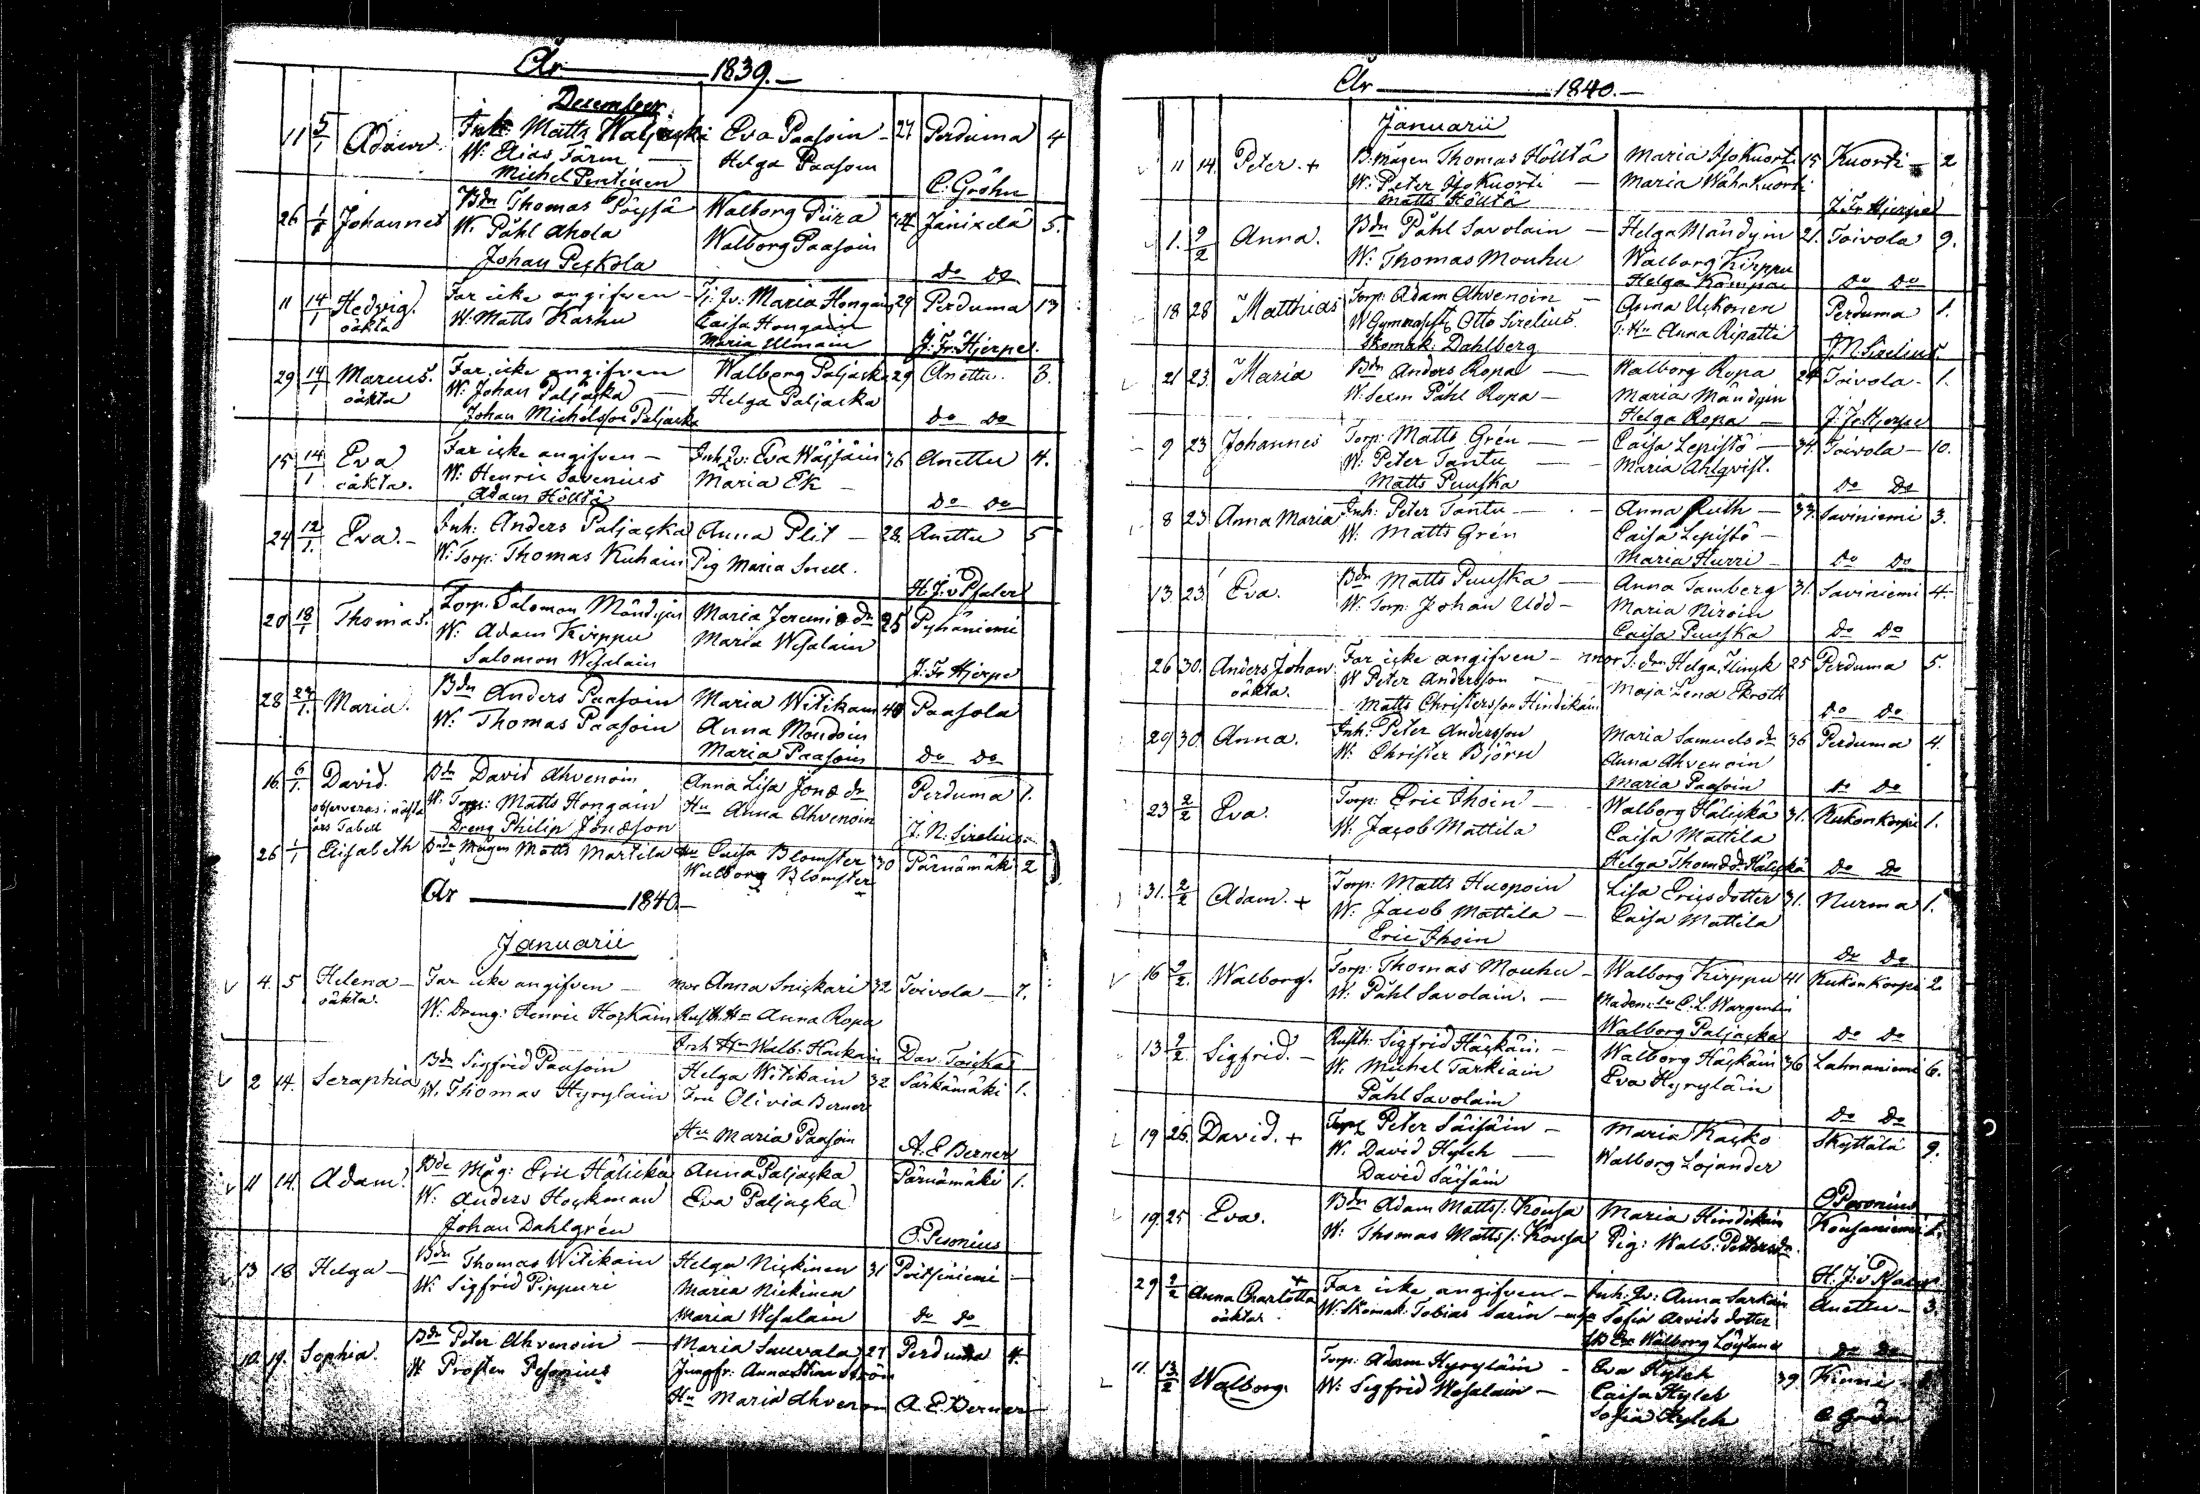 År 1839.
December.
11 5/1 Adam. Inh: Matts Paljacka Eva Paasoin 27 Perduma 4
W: Elias Färm Helga Paasoin
Michel Pentinen C. Gröhn
26 1/1 Johannes Bdn Thomas Pöysä Walborg Piira 34 Jänixelä 5.
W. Påhl Ahola Walborg Paasoin
Johan Peskola Do Do
11 14/1 Hedvig. Far icke angifven Maria Hongain 29 Perduma 13
oäkta W: Matts Karhu Caisa Hongain
Maria Ullmain J. Fr. Hjerpe.
29 14/1 Marcus. Far icke angifven Walborg Paljacka 29 Anettu. 3.
oäkta W. Johan Paljacka Helga Paljacka
Johan Michelsson Paljacka Do Do
15 14/1 Eva Far icke angifven Inh. Qv: Eva Wäisäin 36 Anettu 4.
oäkta. W: Henric Savenius Maria Ek
Adam Hölttä Do Do
24 12/1. Eva. Inh: Anders Paljacka Anna Plit 28. Anettu 5
W: Torp: Thomas Kuhain Pig Maria Snell.
H. J. v Pfaler
20 18/1 Thomas. Torp. Salomon Mändyin Maria Jeremiæ dr 25 Pyhäniemi
W: Adam Kirppu Maria Wesalain
Salomon Wesalain J. Fr Hjerpe
28 /1. Maria. Bdn Anders Paasoin Maria Witikain 40 Paasola
W: Thomas Paasoin Anna Mondoin
Maria Paasoin Do Do
16. 6/1. David. Bdn David Ahvenoin Anna Lisa Jonæ dr Perduma 1.
observeras i nästa W. Torp: Matts Hongain Hu Anna Ahvenoin
års Tabell Dreng Philip Jonæson J. N. Sirelius
26 1/1 Elisabeth Bde Mågen Matts Martila Hu Caisa Blomster 30 Pärnämäki 2
Walborg Blomster
År 1840.
Januarii
4. 5 Helena Far icke angifven mor Anna Snickari 32 Toivola 7.
oäkta. W. Dreng: Henric Hoskain Rusth. Hu Anna Ropa
Inh Hu Walb: Hackain Dav. Toicka
2 14. Seraphia Bdn Sigfrid Paasoin Helga Witikain 32 Särkämäki 1.
W. Thomas Hyrylain Fru Olivia Berner
Hu Maria Paasoin A. E Berner
11 14. Adam. Bde Måg: Eric Hälickä Anna Paljacka Pärnämäki 1.
W: Anders Hockman Eva Paljacka
Johan Dahlgrén O. Pesonius
13 18 Helga Bdn Thomas Witikain Helga Nickinen 31 Poitsiniemi
W: Sigfrid Pippuri Maria Nickinen
Maria Wesalain Do Do
10. 19. Sophia. Bdn Peter Ahvenoin Maria Sauvala 27 Perduma 4.
W Prosten Pesonius Jungfr: Anna Stina Ström
Hu Maria Ahvenoin A. E. Berner
År 1840.
Januarii
11 14. Peter. + B: mågen Thomas Hölttä Maria IsoKuorti 15 Kuorti 2
W: Peter IsoKuorti Maria WähäKuorti
Matts Hölttä J. Fr Hjerpe
1. 2/2 Anna. Bdn Påhl Savolain Helga Mändyin 21. Toivola 9.
W: Thomas Mouhu Walborg Kirppu
Helga Kämpä Do Do
18 28 Matthias Torp: Adam Ahvenoin Anna Uckonen Perduma 1.
W Gymnasist Otto Sirelius. T: Hu Anna Ripatti
Skomak: Dahlberg J. N. Sirelius
21 23. Maria Bdn Anders Ropa Walborg Ropa 24 Toivola 1.
W. Sexm Påhl Ropa Maria Mändyin
Helga Ropa J. Fr Hjerpe
9 23 Johannes Torp: Matts Grén Caisa Lepistö 34. Toivola 10.
W: Peter Tantu Maria Ahlqvist.
Matts Puuska Do Do
8 23. Anna Maria Inh: Peter Tantu Anna Ruth 33. Saviniemi 3.
W. Matts Grén Caisa Lepistö
Maria Hurri Do Do
13. 23. Eva. Bdn Matts Puuska Anna Tamberg 31. Saviniemi 4.
W: Torp: Johan Udd Maria Niroin
Caisa Puuska Do Do
26 30. Anders Johan Far icke angifven mor T: dr Helga Flinck 25 Perduma 5.
oäkta. W Peter Andersson Maja Lena Ekroth
Matts Christersson Hindikain Do Do
29 30. Anna. Inh: Peter Andersson Maria Samuels dr 36 Perduma 4.
W: Christer Björn Anna Ahvenoin
Maria Paasoin Do Do
23 2/2 Eva. Torp: Eric Ihoin Walborg Hälickä 31. Kukonkorpi 1.
W: Jacob Mattila Caisa Mattila
Helga Thomæ dr Hälickä Do Do
31. 2/2 Adam. + Torp: Matts Huopoin Lisa Ericsdotter 31. Nurma 1.
W: Jacob Mattila Caisa Mattila
Eric Ihoin Do Do
16 2/2. Walborg. Torp: Thomas Mouhu Walborg Kirppu 41 Kukonkorpi 2.
W: Påhl Savolain. Madem: C. L. Wargentin
Walborg Paljacka Do Do
13 2/2 Sigfrid. Rusth: Sigfrid Häckäin Walborg Häckäin 36 Lahnaniemi 6.
W. Michel Tarkiain Eva Hyryläin
Påhl Savolain Do Do
19 26. David. + Torp Peter Säisäin Maria Kacko Skyttälä 9.
W. David Hylch Walborg Lojander
David Säisäin O Pesonius
19. 25 Eva. Bdn Adam Matts s. Kousa Maria Hindikain Kousaniemi
W: Thomas Matts s: Kousa Pig: Walb: Petters dr.
H. J: v Pfaler
29 2/2 Anna Charlotta + Far icke angifven Inh: Qv: Anna Sarkain Anettu 3.
oäkta W: Skomak: Tobias Sarin Sofia Arvids dotter
Walborg Löytänä Do Do
11. 13/2 Walborg. Torp: Adam Hyryläin Eva Hylch 39. Kinni
W: Sigfrid Wesalain Caisa Hylch
Sofia Hylch C Gröhn